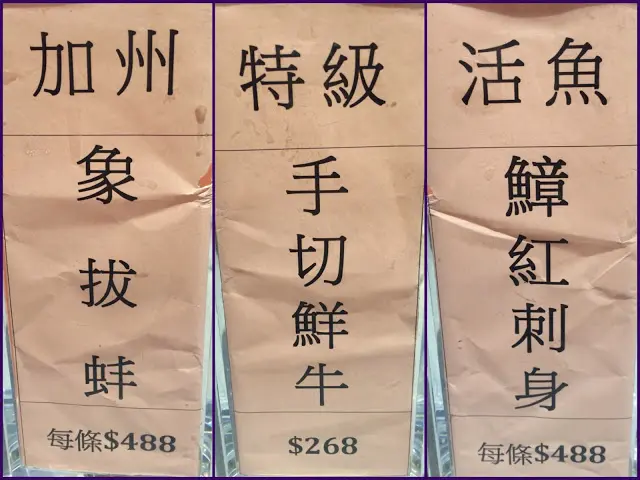 加州
象
拔
蚌
每條$488
特級
手
切
鮮
牛
$268
活魚
鱆
紅
刺
身
每條$488